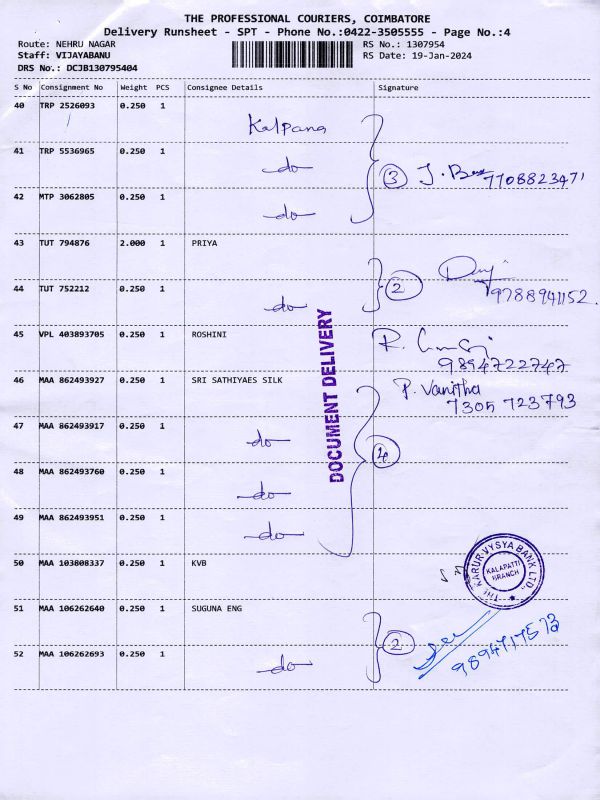 THE PROFESSIONAL COURIERS, COIMBATORE
Delivery Runsheet - SPT - Phone No.:0422-3505555 - Page No.:4
Route: NEHRU NAGAR RS No.: 1307954
Staff: VIJAYABANU RS Date: 19-Jan-2024
DRS No.: DCJB130795404
S No Consignment No Weight PCS Consignee Details Signature
40 TRP 2526093 0.250 1 Kalpana
41 TRP 5536965 0.250 1 do 3 J. 7708823471
42 MTP 3062805 0.250 1 do
43 TUT 794876 2.000 1 PRIYA
44 TUT 752212 0.250 1 do 2 9788941152.
45 VPL 403893705 0.250 1 ROSHINI R. 9894722747
46 MAA 862493927 0.250 1 SRI SATHIYAES SILK P. Vanitha 7305 723793
47 MAA 862493917 0.250 1 do 4
48 MAA 862493760 0.250 1 do
49 MAA 862493951 0.250 1 do
50 MAA 103808337 0.250 1 KVB
THE KARUR VYSYA BANK LTD.,
KALAPATTI
BRANCH
51 MAA 106262640 0.250 1 SUGUNA ENG 2 9894717573
52 MAA 106262693 0.250 1 do
DOCUMENT DELIVERY